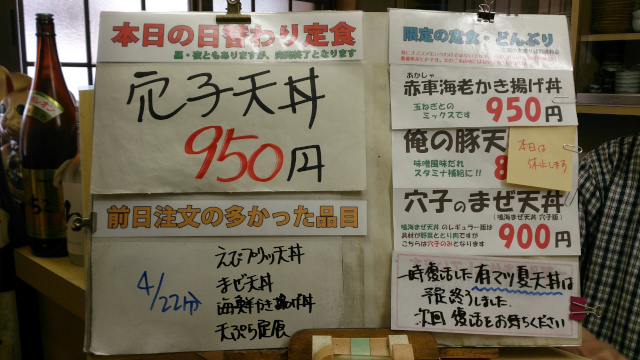 本日の日替わり定食
昼・夜ともありますが、売切終了となります
穴子天丼
950円
前日注文の多かった品目
4/22分
えびプリッ天丼
まぜ天丼
海鮮かき揚げ丼
天ぷら定食
限定の定食・どんぶり
あかしゃ
赤車海老かき揚げ丼
玉ねぎとの
ミックスです
950円
俺の豚天
味噌風味だれ
スタミナ補給に!!
8
本日は
休止します
穴子のまぜ天丼
(鳴海まぜ天丼 穴子版)
鳴海まぜ天丼 のレギュラー版は
具材が野菜ととり肉ですが
こちらは穴子のみとなります
900円
一時復活した有マツ夏天丼は
予定終うしました
次回 復活をお待ちください